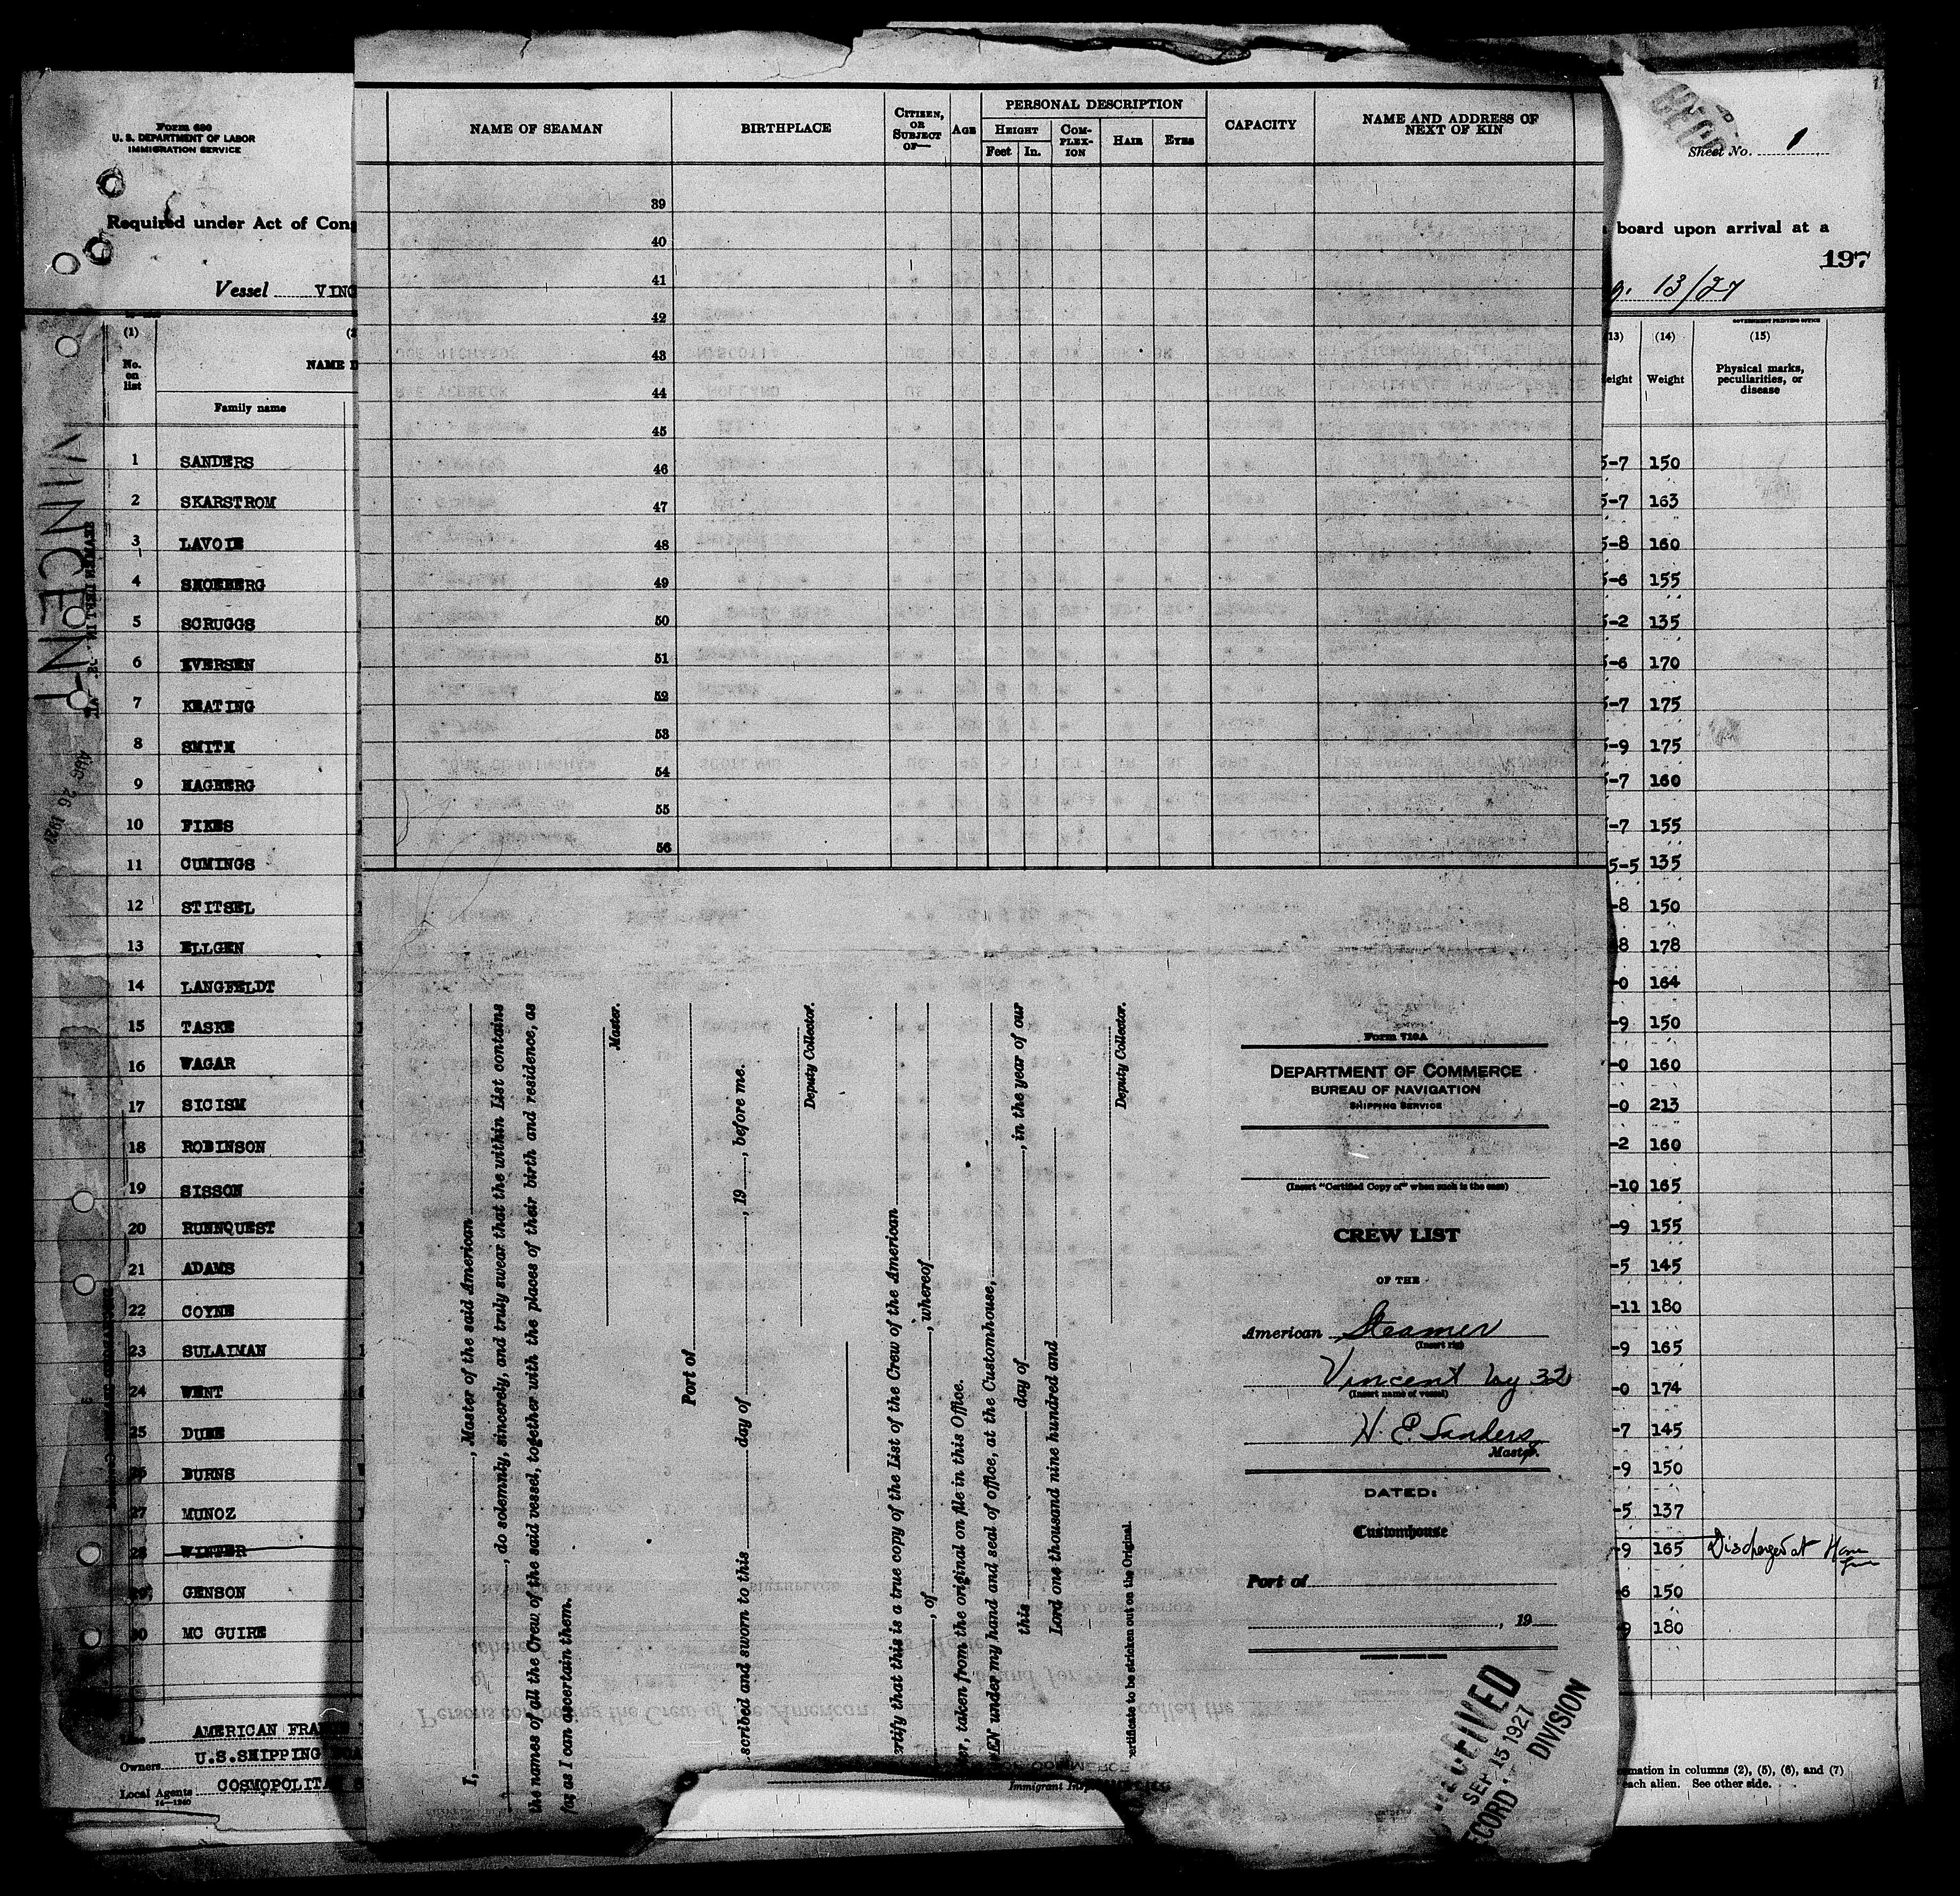 Form 680
U. S. DEPARTMENT OF LABOR
IMMIGRATION SERVICE
Required under Act of Cong
Vessel VINC
(1)
No. on list
NAME
Family name
1 SANDERS
2 SKARSTROM
3 LAVOIE
4 SHOEBERG
5 SCRUGGS
6 EVERSEN
7 KEATING
8 SMITH
9 HAGBERG
10 FIKES
11 CUMINGS
12 STITSEL
13 ELLGEN
14 LANGFELDT
15 TASKE
16 WAGAR
17 SICISM
18 ROBINSON
19 SISSON
20 RUNNQUEST
21 ADAMS
22 COYNE
23 SULAIMAN
24 WENT
25 DUBE
26 BURNS
27 MUNOZ
28 WINTER
29 GENSON
30 MC GUIRE
AMERICAN FRANCE
Owners U.S.SHIPPING
Local Agents COSMOPOLITAN
14—1240
VINCENT
AUG 26 192
NAME OF SEAMAN
BIRTHPLACE
CITIZEN, OR SUBJECT OF—
AGE
PERSONAL DESCRIPTION
HEIGHT
Feet In.
COM-PLEX-ION
HAIR
EYES
CAPACITY
NAME AND ADDRESS OF NEXT OF KIN
39
40
41
42
43
44
45
46
47
48
49
50
51
52
53
54
55
56
I, , Master of the said American
, do solemnly, sincerely, and truly swear that the within List contains
the names of all the Crew of the said vessel, together with the places of their birth and residence, as
far as I can ascertain them.
Master.
Port of
scribed and sworn to this day of , 19 , before me.
Deputy Collector.
ertify that this is a true copy of the List of the Crew of the American
, of , whereof
er, taken from the original on file in this Office.
EN under my hand and seal of office, at the Customhouse,
this day of , in the year of our
Lord one thousand nine hundred and
Deputy Collector.
ertificate to be stricken out on the Original.
Immigrant Ins
Form 710A
DEPARTMENT OF COMMERCE
BUREAU OF NAVIGATION
SHIPPING SERVICE
(Insert "Certified Copy of" when such is the case)
CREW LIST
OF THE
American Steamer
(Insert rig)
Vincent
(Insert name of vessel)
H. E. Sanders
Master.
DATED:
Customhouse
Port of
, 19
RECEIVED
SEP 15 1927
RECORD DIVISION
Sheet No. 1
board upon arrival at a
197
g. 13/27
GOVERNMENT PRINTING OFFICE
(13) (14) (15)
eight
Weight
Physical marks, peculiarities, or disease
5-7 150
5-7 163
5-8 160
5-6 155
5-2 135
5-6 170
5-7 175
5-9 175
5-7 160
-7 155
5-5 135
-8 150
8 178
-0 164
-9 150
-0 160
-0 213
-2 160
-10 165
-9 155
-5 145
-11 180
-9 165
-0 174
-7 145
-9 150
-5 137
-9 165 Discharged at
6 150
9 180
mation in columns (2), (5), (6), and (7)
each alien. See other side.